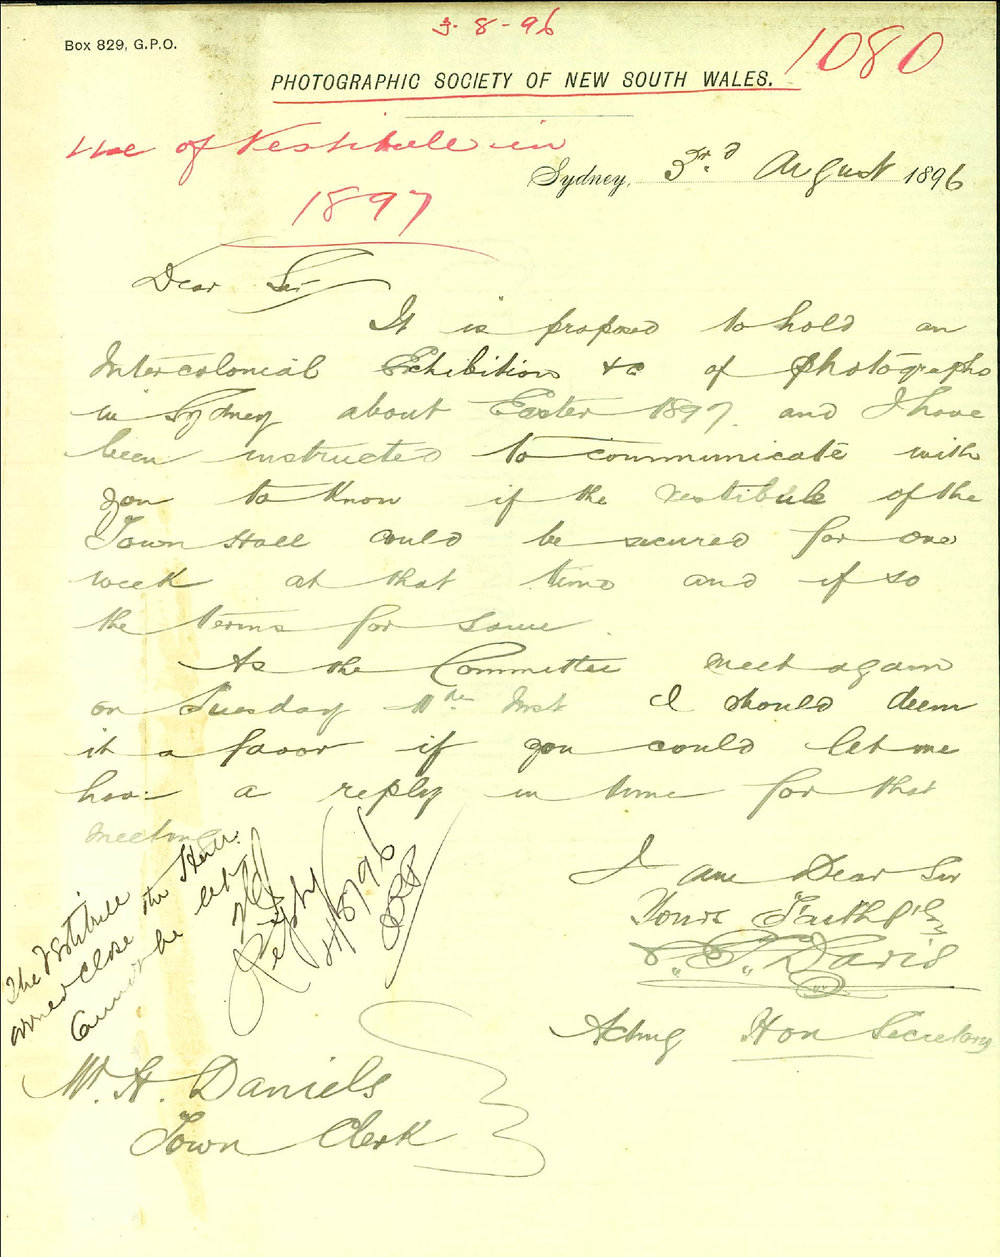 3-8-96
Box 829, G.P.O.
1080
PHOTOGRAPHIC SOCIETY OF NEW SOUTH WALES.
Use of Vestibule in
1897
Sydney, 3rd August 1896
Dear Sir
It is proposed to hold an
Intercolonial Exhibition &c of photographs
in Sydney about Easter 1897 and I have
been instructed to communicate with
you to know if the vestibule of the
Town Hall could be secured for one
week at that time and if so
the terms for same
As the Committee meet again
on Tuesday 11th Inst I should deem
it a favor if you could let me
have a reply in time for that
meeting
I am Dear Sir
Yours Faithfully
Davis
Acting Hon Secretary
The Vestibule
close the Hall
Cannot be let
Reply
4/8/96
Mr. H. Daniels
Town Clerk